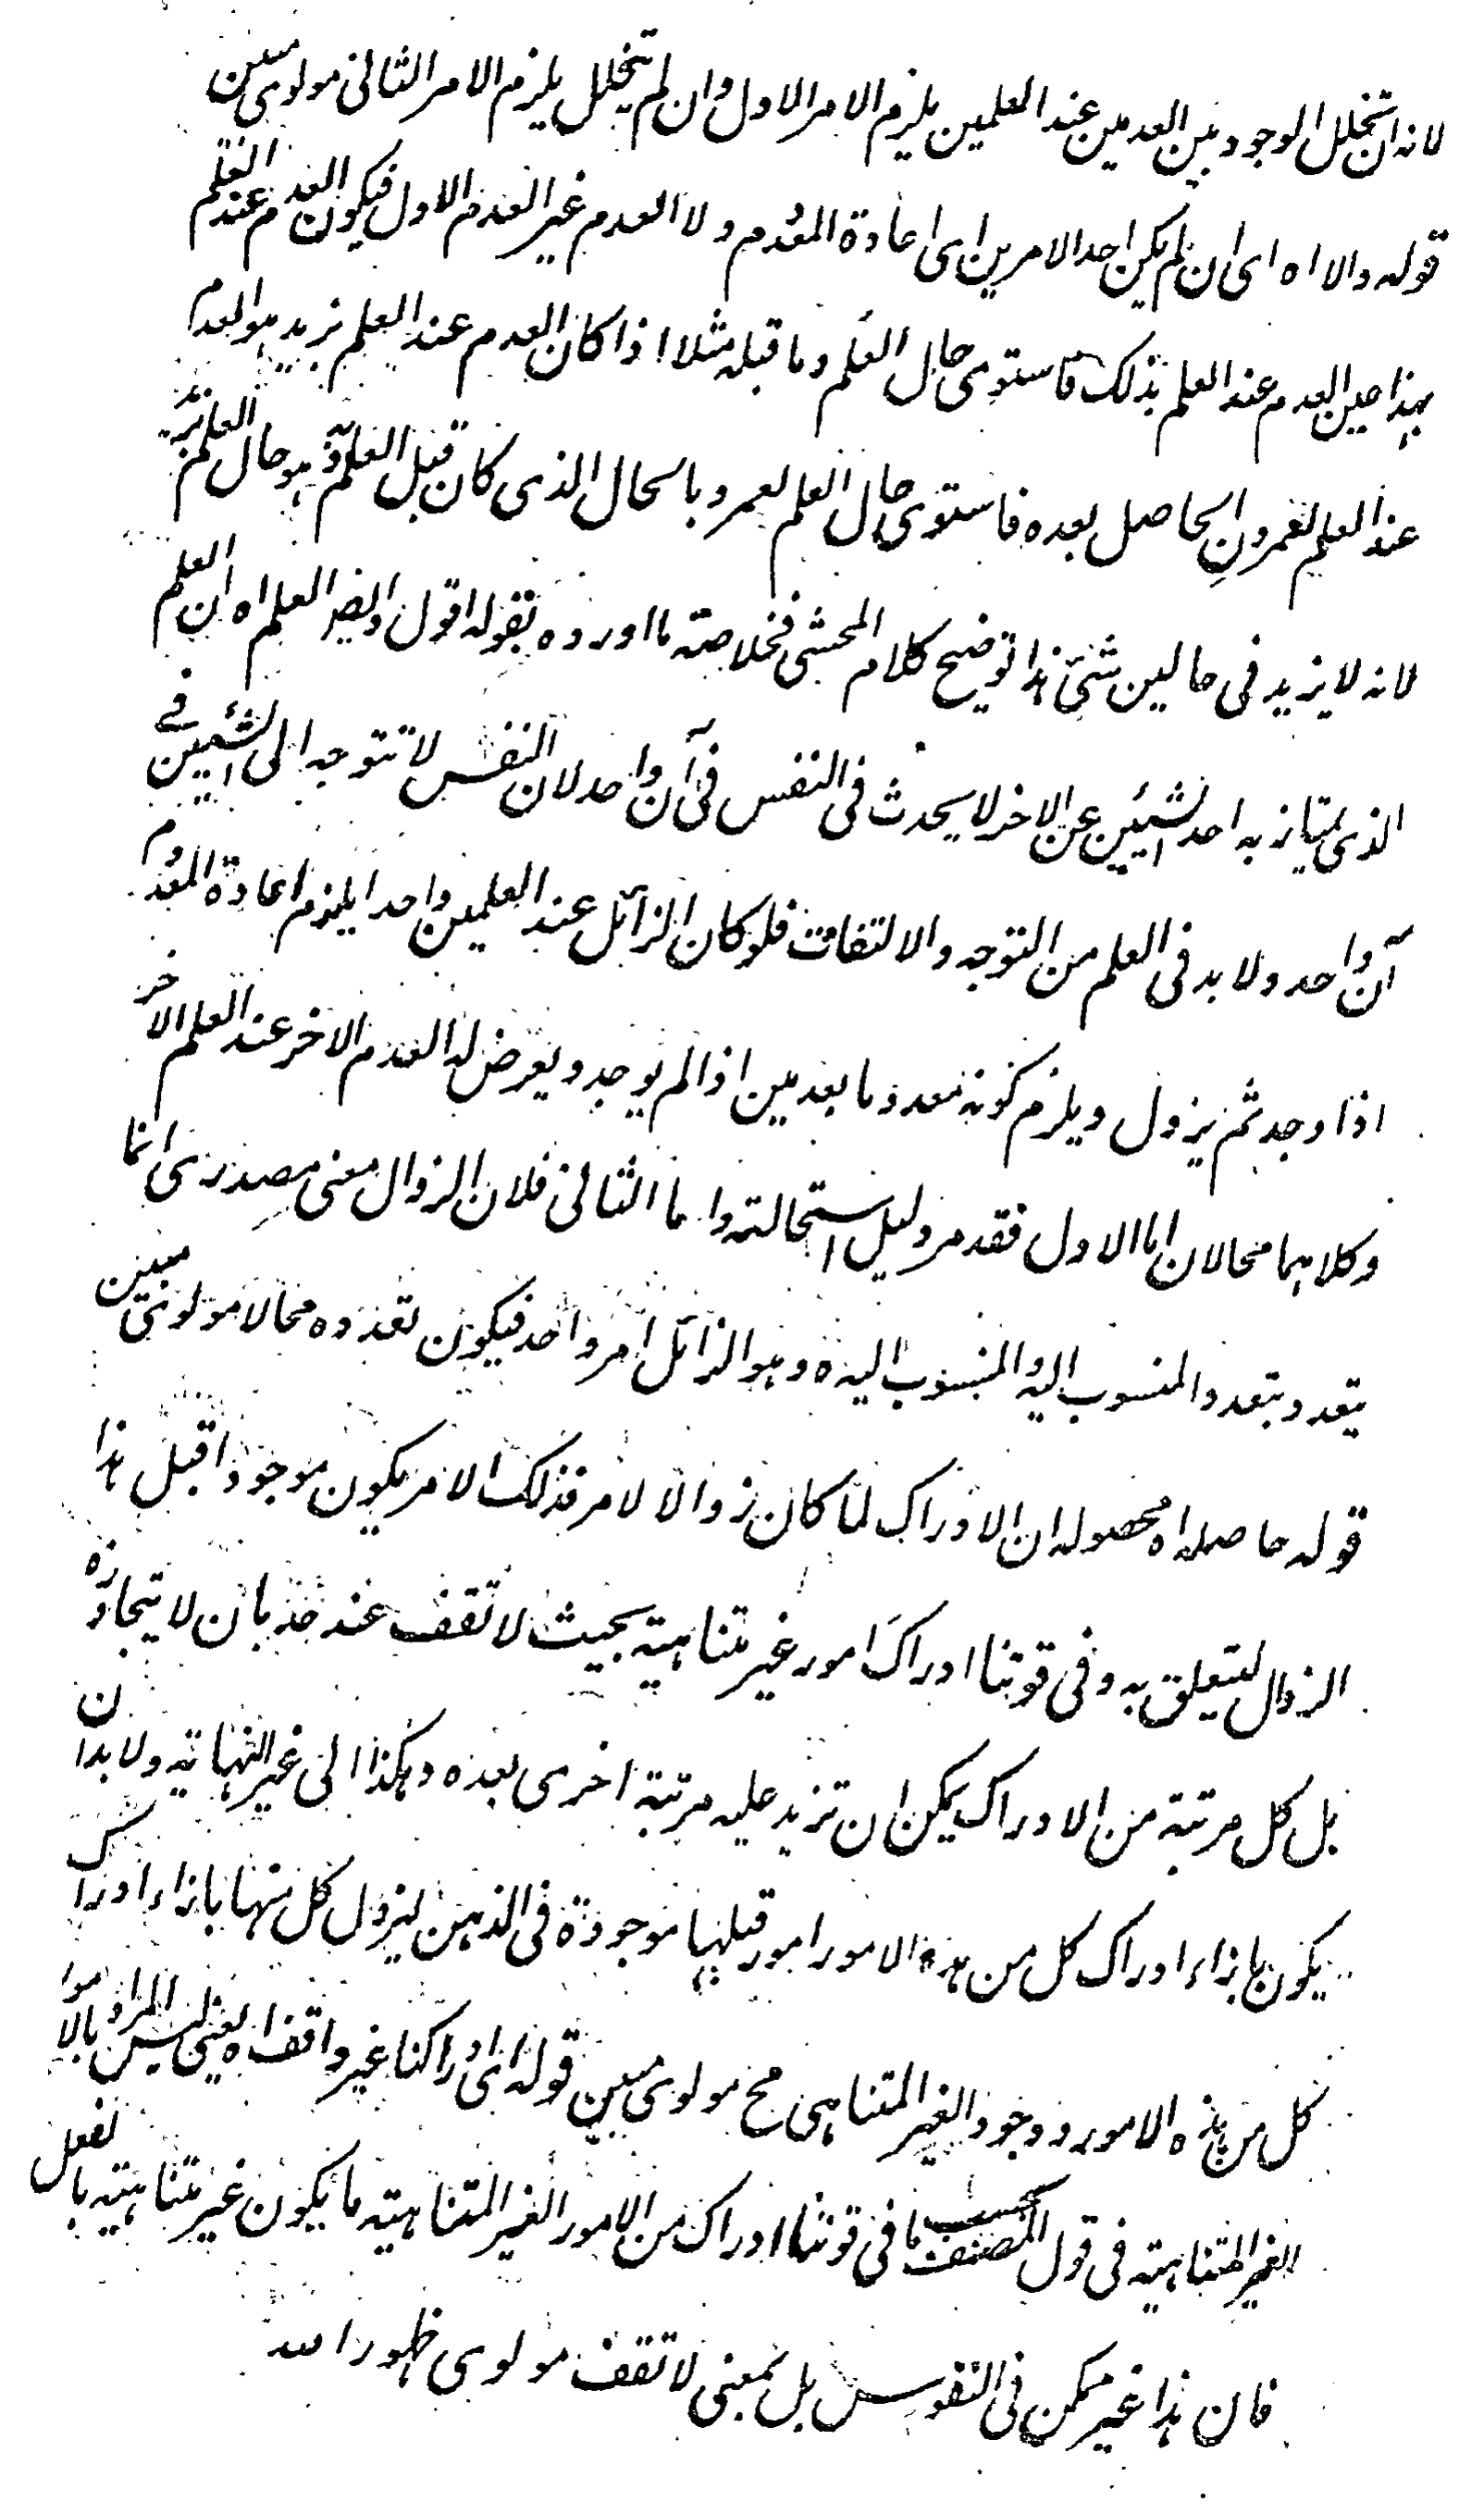 لانه ان تخلل الوجود بين العدمين عند العلمين يلزم الامر الاول وان لم يتخلل يلزم الامر الثانى مولوى مبين
قوله والا اه اى ان لم يكن احد الامرين اى اعادة المعدوم ولا العدم غير العدم الاول فيكون العدم عند العلم
بهذا عين العدم عند العلم بذلك فاستوى حال العلم وما قبله مثلا اذا كان العدم عند العلم بزيد هو العدم
عند العلم لعمرو الحاصل بعده فاستوى حال العلم لعمرو بالحال الذى كان قبل العلم وهو حال العلم بزيد
لانه لا يزيد فى حالين شئ هذا توضيح كلام المحشى فخلاصة ما اورده بقوله اقول وايضا العلم اه ان العلم
الذى يمتاز به احد الشيئين عن الاخر لا يحدث فى النفس فى آن واحد لان النفس لا تتوجه الى الشيئين فے
آن واحد ولا بد فى العلم من التوجه والالتفات فلو كان الزائل عند العلمين واحدا يلزم اعادة المعدوم
اذا وجد ثم يزول ويلزم كونه معدوما بعدمين اذا لم يوجد ويعرض له العدم الاخر عند العلم الاخر
وكلاهما محالان اما الاول فقد مر دليل استحالته واما الثانى فلان الزوال معنى مصدرى انما
يتعدد بتعدد المنسوب اليه والمنسوب اليه وهو الزائل امر واحد فيكون تعدده محالا مولوى مبين
قوله حاصله اه محصوله ان الادراك لما كان زوالا لامر فذلك الامر يكون موجودا قبل هذا
الزوال ليتعلق به وفى قوتنا ادراك امور غير متناهية بحيث لا تقف عند حد بان لا يتجاوزه
بل كل مرتبة من الادراك يمكن ان تزيد عليه مرتبة اخرى بعده وهكذا الى غير النهاية ولا بد ان
يكون بازاء ادراك كل من هذه الامور امور قبلها موجودة فى الذهن ليزول كل منها بازاء ادراك
كل من هذه الامور ووجود الغير المتناهى مح مولوى مبين قوله اى ادراكنا غير واقف اه يعنى ليس المراد بالامور
الغير المتناهية فى قول المصنف بحسب ما فى قوتنا ادراك من الامور الغير المتناهية ما يكون غير متناهية بالفعل
فان هذا غير ممكن فى النفوس بل بمعنى لا تقف مولوى ظهور الله